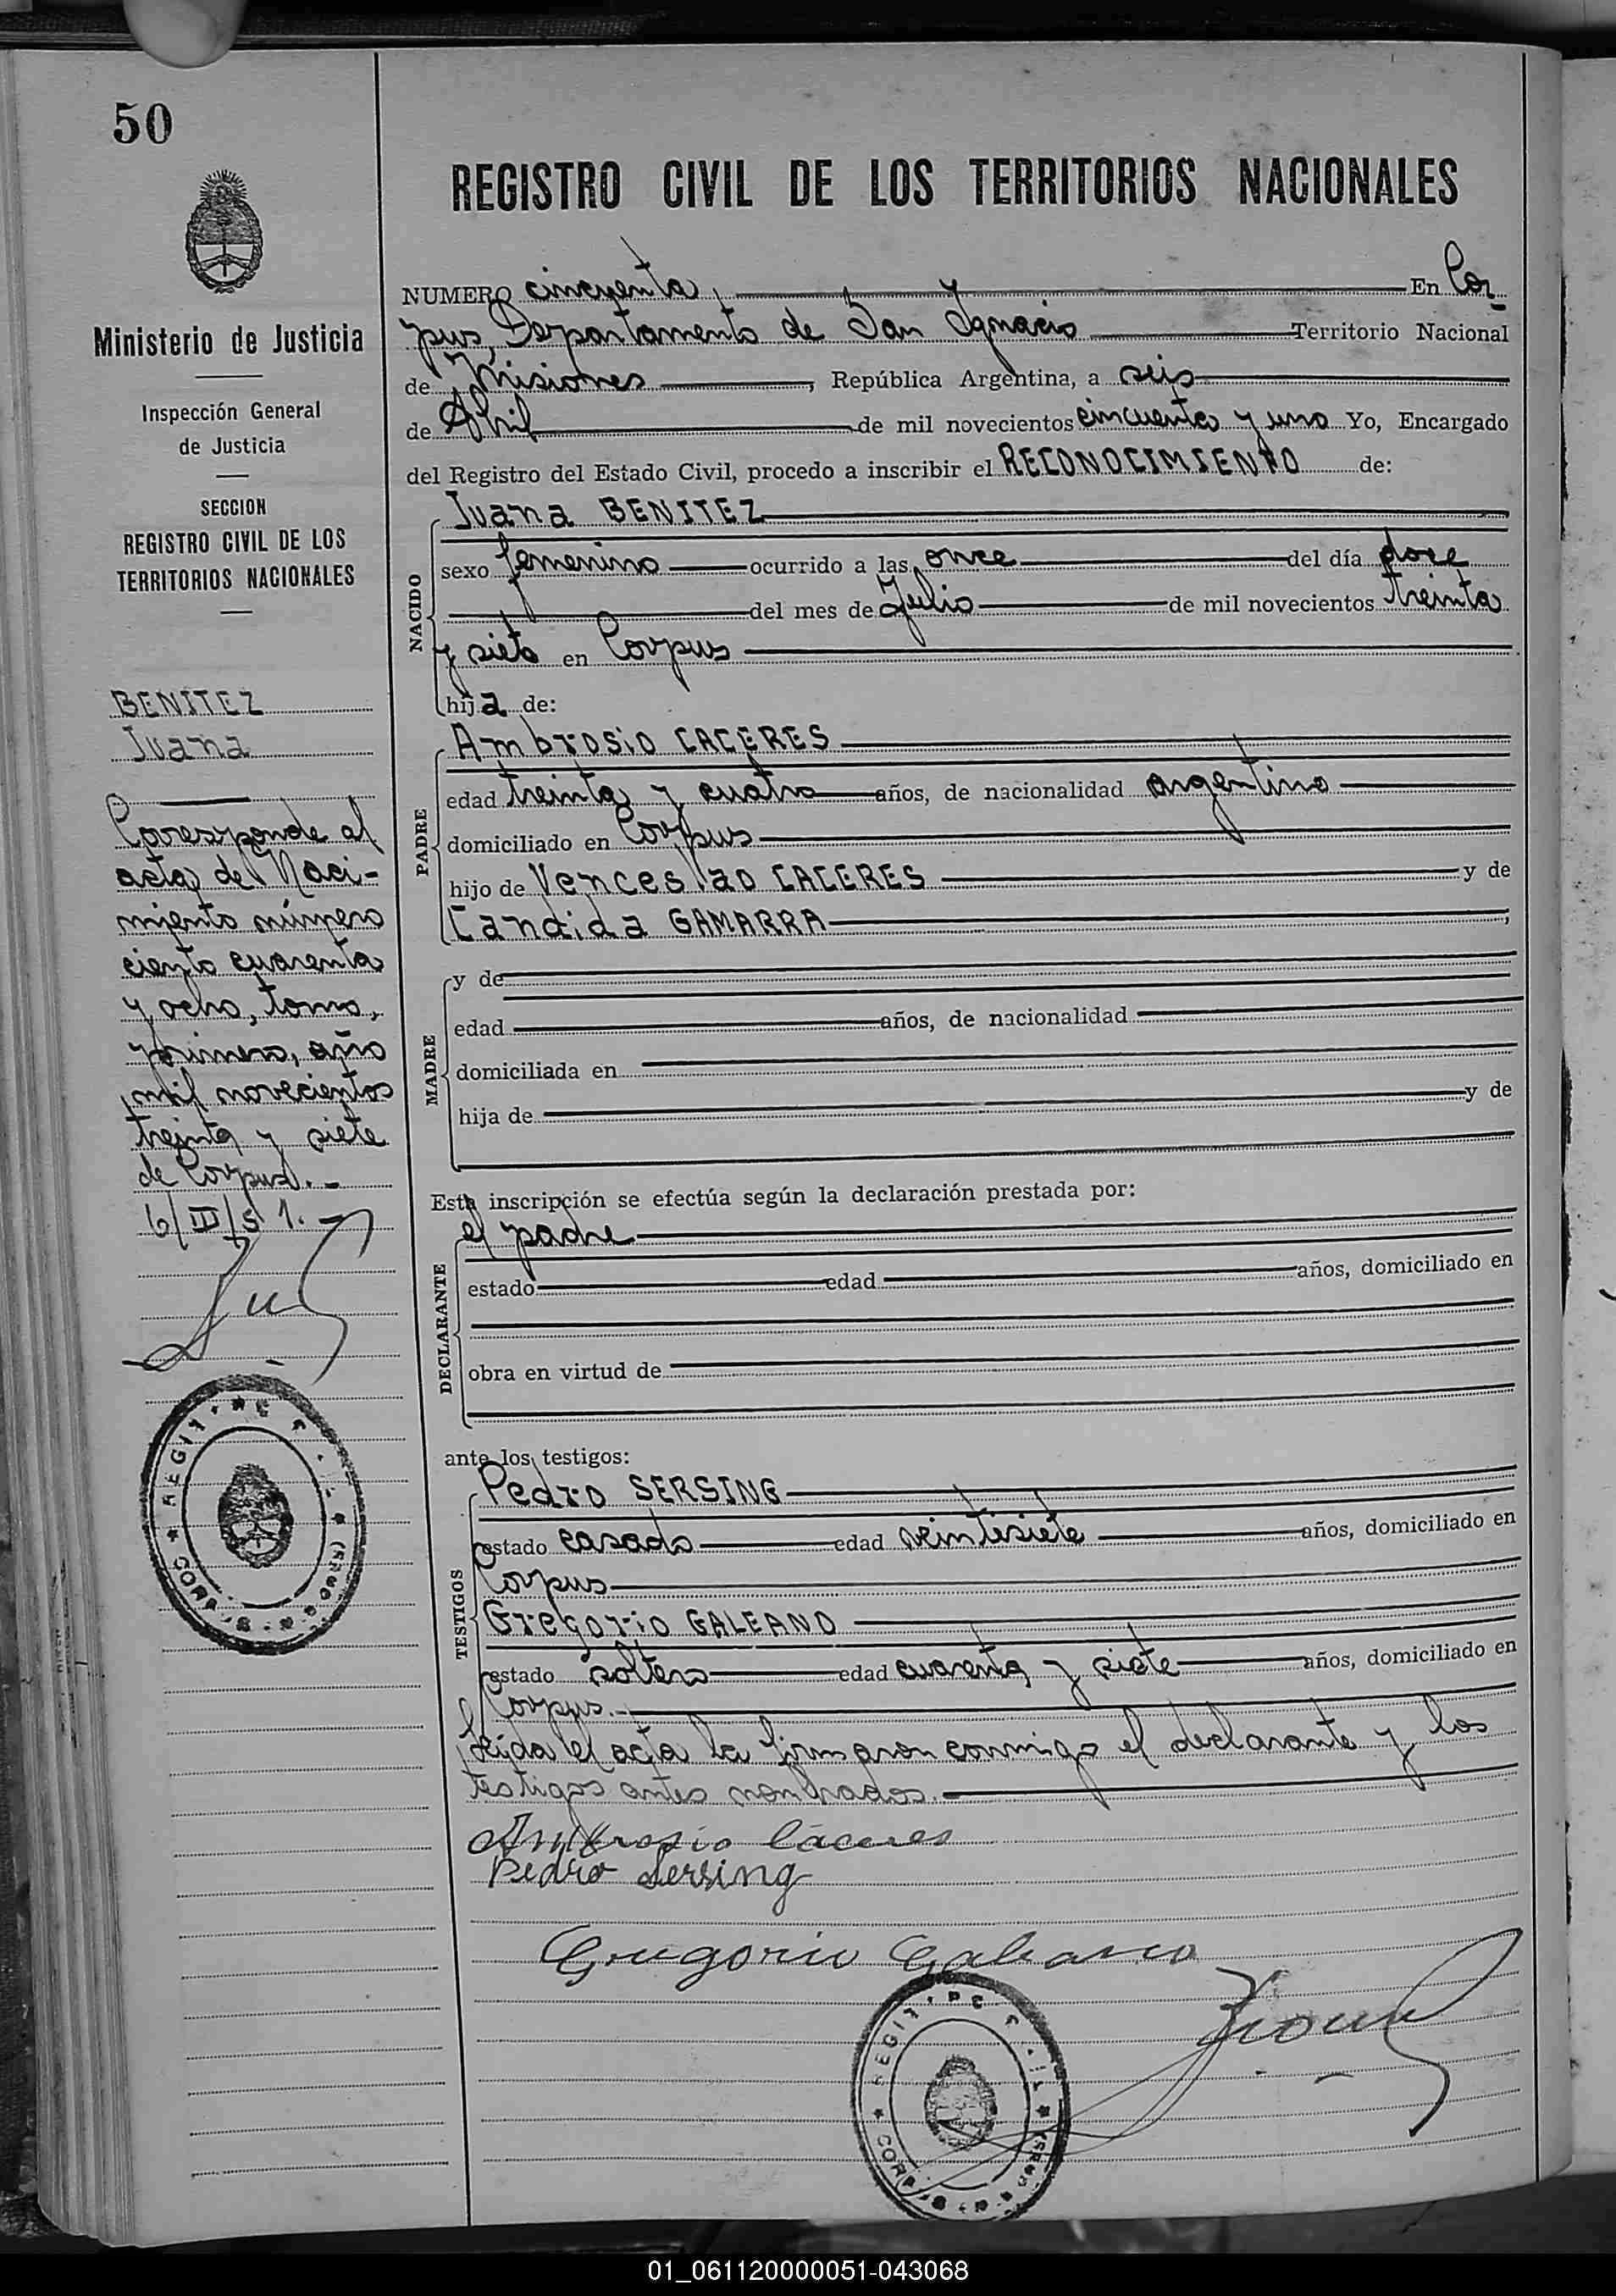 50
Ministerio de Justicia
Inspección General
de Justicia
SECCION
REGISTRO CIVIL DE LOS
TERRITORIOS NACIONALES
BENITEZ
Juana
Corresponde al
acta de Naci-
miento número
ciento cuarenta
y ocho, tomo,
primero, año
mil novecientos
treinta y siete
de Corpus.-
REGISTRO CIVIL DE LOS TERRITORIOS NACIONALES
NUMERO cincuenta, En Cor-
pus, Departamento de San Ignacio Territorio Nacional
de Misiones, República Argentina, a seis
de Abril de mil novecientos cincuenta y uno Yo, Encargado
del Registro del Estado Civil, procedo a inscribir el RECONOCIMIENTO de:
NACIDO
Juana BENITEZ
sexo femenino ocurrido a las once del día doce
del mes de Julio de mil novecientos treinta
y siete en Corpus
hija de:
PADRE
Ambrosio CACERES
edad treinta y cuatro años, de nacionalidad argentino
domiciliado en Corpus
hijo de Venceslao CACERES y de
Candida GAMARRA,
MADRE
y de
edad años, de nacionalidad
domiciliada en
hija de y de
Esta inscripción se efectúa según la declaración prestada por:
DECLARANTE
el padre
estado edad años, domiciliado en
obra en virtud de
ante los testigos:
TESTIGOS
Pedro SERSING
estado casado edad veintisiete años, domiciliado en
Corpus
Gregorio GALEANO
estado soltero edad cuarenta y siete años, domiciliado en
Corpus.-
Leída el acta la firmaron conmigo el declarante y los
testigos antes nombrados.-
Ambrosio Cáceres
Pedro Sersing
Gregorio Galeano
01_061120000051-043068